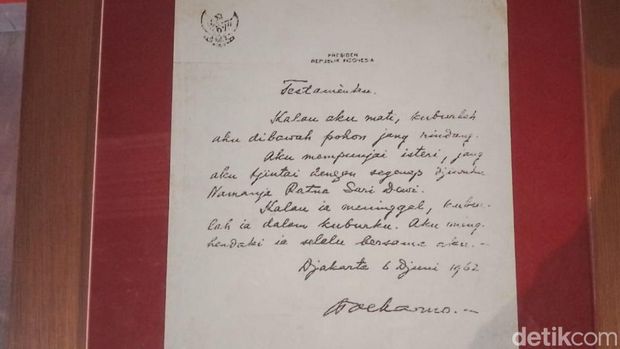 PRESIDEN
REPUBLIK INDONESIA
Testamentku.
Kalau aku mati, kuburlah
aku dibawah pohon jang rindang.
Aku mempunjai isteri, jang
aku tjintai dengan segenap djiwaku.
Namanja Ratna Sari Dewi.
Kalau ia meninggal, kubur-
lah ia dalam kuburku. Aku meng-
hendaki ia selalu bersama aku.
Djakarta 6 Djuni 1962
Soekarno.
detikcom